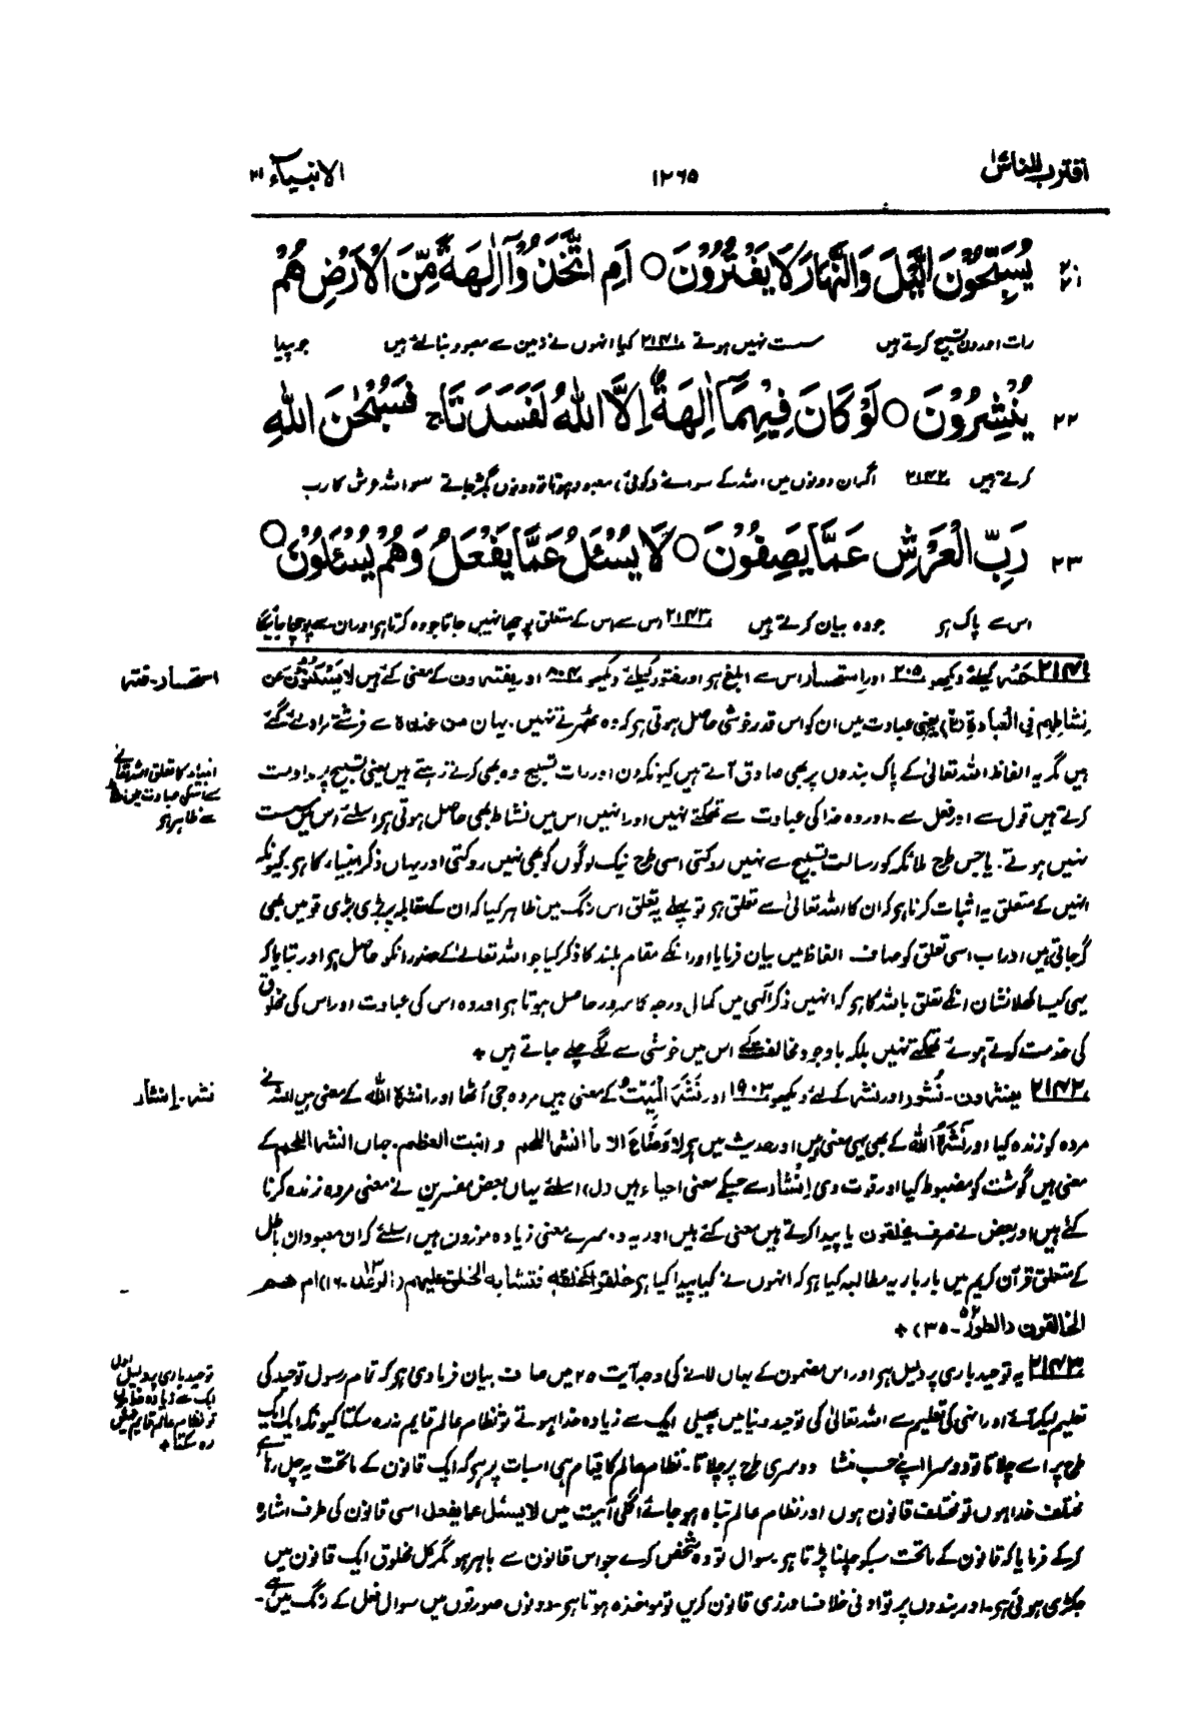 اقترب للناس
١٢٦٥
الانبیآء ٢١
٢٠
٢١
یُسَبِّحُوْنَ الَّیْلَ وَالنَّهَارَ لَا یَفْتُرُوْنَ ○ اَمِ اتَّخَذُوْۤا اٰلِهَةً مِّنَ الْاَرْضِ هُمْ
رات اور دن تسبیح کرتے ہیں سست نہیں ہوتے ٢١٤١ کیا انہوں نے زمین سے معبود بنا لئے ہیں جو پیدا
٢٢ یُنْشِرُوْنَ ○ لَوْ كَانَ فِیْهِمَاۤ اٰلِهَةٌ اِلَّا اللّٰهُ لَفَسَدَتَا ۚ فَسُبْحٰنَ اللّٰهِ
کرتے ہیں ٢١٤٢ اگر ان دونوں میں اللہ کے سوائے (کوئی) معبود ہوتا تو دونوں بگڑ جاتے سو اللہ عرش کا رب
٢٣ رَبِّ الْعَرْشِ عَمَّا یَصِفُوْنَ ○ لَا یُسْئَلُ عَمَّا یَفْعَلُ وَهُمْ یُسْئَلُوْنَ ○
اس سے پاک ہو جو وہ بیان کرتے ہیں ٢١٤٣ اس سے اس کے متعلق پوچھا نہیں جاتا جو وہ کرتا ہو اور ان سے پوچھا جائیگا
استحسار۔ فتر
٢١٤١ حسر کیلئے دیکھو ٢٠٥ اور استحسار اس سے ابلغ ہو اور فتور کیلئے دیکھو اور یفترون کے معنی کئے ہیں لا یسکنون عن
نشاطهم فی العبادة (غ) یعنی عبادت میں ان کو اس قدر خوشی حاصل ہوتی ہو کہ وہ ٹھہرتے نہیں۔ یہاں من عندہ سے فرشتے مراد لئے گئے
انبیاء کا تعلق اللہ تعالیٰ
سے انکی عبادت میں نشاط
سے ظاہر ہو
ہیں مگر یہ الفاظ اللہ تعالیٰ کے پاک بندوں پر بھی صادق آتے ہیں کیونکہ دن اور رات تسبیح وہ بھی کرتے رہتے ہیں یعنی تسبیح پر مداومت
کرتے ہیں قول سے اور فعل سے۔ اور وہ خدا کی عبادت سے تھکتے نہیں اور انہیں اس میں نشاط بھی حاصل ہوتی ہو اسلئے اس میں سست
نہیں ہوتے۔ یا جس طرح ملائکہ کو رسالت تسبیح سے نہیں روکتی اسی طرح نیک لوگوں کو بھی نہیں روکتی اور یہاں ذکر انبیاء کا ہو۔ کیونکہ
انہیں کے متعلق یہ اثبات کرنا ہو کہ ان کا اللہ تعالیٰ سے تعلق ہو تو پہلے یہ تعلق اس رنگ میں ظاہر کیا کہ ان کے مقابلہ پر بڑی بڑی قومیں بھی
گر جاتی ہیں اور اب اسی تعلق کو صاف الفاظ میں بیان فرمایا اور انکے مقام بلند کا ذکر کیا جو اللہ تعالیٰ کے حضور انکو حاصل ہو اور بتایا کہ
یہی کیسا کھلا نشان انکے تعلق باللہ کا ہو کہ انہیں ذکر الٰہی میں کمال درجہ کا سرور حاصل ہوتا ہو اور وہ اس کی عبادت اور اس کی مخلوق
کی خدمت کرتے ہوئے تھکتے نہیں بلکہ باوجود مخالفت کے اس میں خوشی سے لگے چلے جاتے ہیں +
نشر۔ انشار
٢١٤٢ ینشرون۔ نشور اور نشر کے لئے دیکھو ١٩٠٣ اور نَشَرَ الْمَیِّتُ کے معنی ہیں مردہ جی اُٹھا اور انشرہ اللہ کے معنی ہیں اللہ نے
مردہ کو زندہ کیا اور نَشَرَهُ اللہ کے بھی یہی معنی ہیں اور حدیث میں ہو لا رضاع الا ما انشر اللحم و انبت العظم۔ جہاں انشر اللحم کے
معنی ہیں گوشت کو مضبوط کیا اور قوت دی اِنشار سے جسکے معنی احیاء ہیں (ل) اسلئے یہاں بعض مفسرین نے معنی مردہ زندہ کرنا
کئے ہیں اور بعض نے صرف یخلقون یا پیدا کرتے ہیں معنی کئے ہیں اور یہ دوسرے معنی زیادہ موزون ہیں اسلئے کہ ان معبودان باطل
کے متعلق قرآن کریم میں بار بار یہ مطالبہ کیا ہو کہ انہوں نے کیا پیدا کیا ہو خلقوا کخلقہ فتشابہ الخلق علیهم (الرعد ١٣۔ ١٦) ام هم
الخالقون (الطور ٥٢۔ ٣٥) +
توحید باری پر دلیل اول
ایک سے زیادہ خدا ہوں
تو نظام عالم قایم نہیں
رہ سکتا +
٢١٤٣ یہ توحید باری پر دلیل ہو اور اس مضمون کے یہاں لانے کی وجہ آیت ٢٥ میں صاف بیان فرما دی ہو کہ تمام رسول توحید کی
تعلیم لیکر آئے اور انہی کی تعلیم سے اللہ تعالیٰ کی توحید دنیا میں پھیلی ایک سے زیادہ خدا ہوتے تو نظام عالم قایم نہ رہ سکتا کیونکہ ایک ایک
طرح پر اسے چلاتا تو دوسرا اپنے حسب منشا دوسری طرح پر چلاتا۔ نظام عالم کا قیام ہی اسبات پر ہو کہ ایک قانون کے ماتحت یہ چل رہا ہے
مختلف خدا ہوں تو مختلف قانون ہوں اور نظام عالم تباہ ہو جائے اگلی آیت میں لا یسئل عما یفعل اسی قانون کی طرف اشارہ
کرکے فرمایا کہ قانون کے ماتحت سبکو چلنا پڑتا ہو۔ سوال تو وہ شخص کرے جو اس قانون سے باہر ہو مگر کل مخلوق ایک قانون میں
جکڑی ہوئی ہو۔ اور بندوں پر تو ادنیٰ خلاف ورزی قانون کریں تو مواخذہ ہوتا ہو۔ دونوں صورتوں میں سوال فعل کے رنگ میں ہے۔